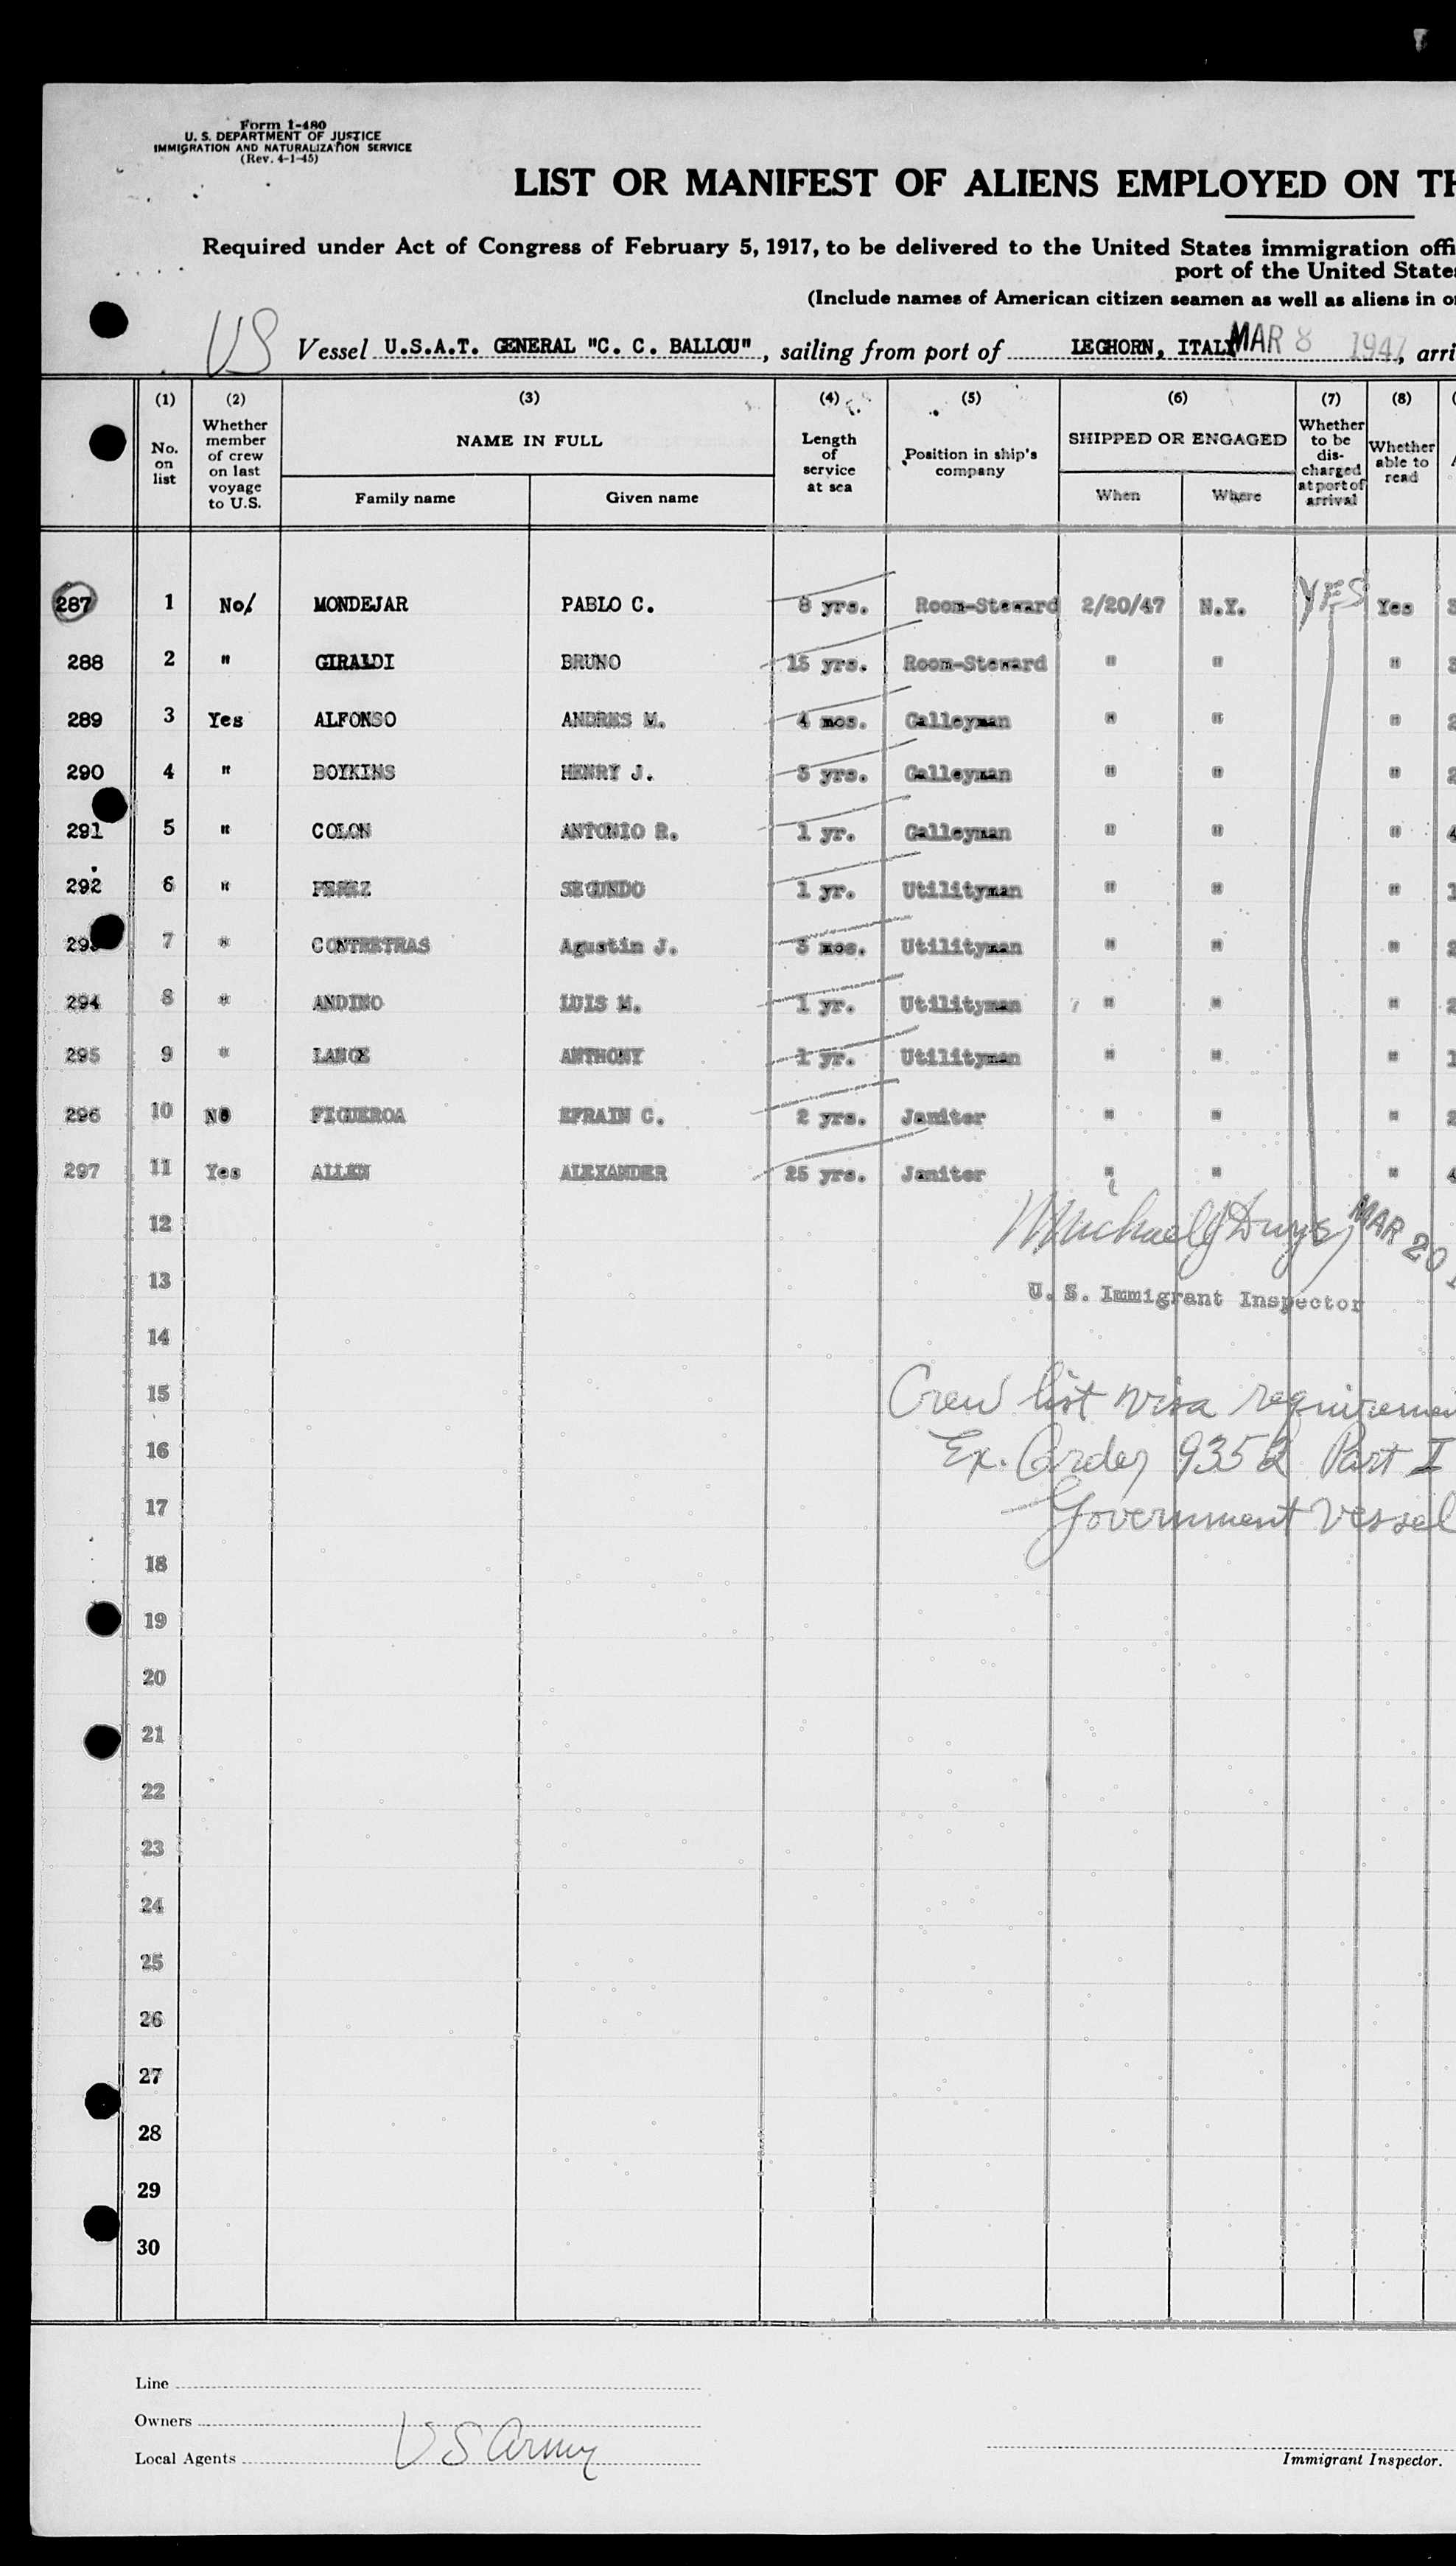 Form I-480
U. S. DEPARTMENT OF JUSTICE
IMMIGRATION AND NATURALIZATION SERVICE
(Rev. 4-1-45)
LIST OR MANIFEST OF ALIENS EMPLOYED ON TH
Required under Act of Congress of February 5, 1917, to be delivered to the United States immigration offi
port of the United States
(Include names of American citizen seamen as well as aliens in o
US Vessel U.S.A.T. GENERAL "C. C. BALLOU", sailing from port of LEGHORN, ITALY MAR 8 1947, arri
(1) (2) (3) (4) (5) (6) (7) (8)
No. on list Whether member of crew on last voyage to U.S. NAME IN FULL Length of service at sea Position in ship's company SHIPPED OR ENGAGED Whether to be discharged at port of arrival Whether able to read
Family name Given name When Where
287 1 No/ MONDEJAR PABLO C. 8 yrs. Room-Steward 2/20/47 N.Y. YES Yes
288 2 " GIRALDI BRUNO 15 yrs. Room-Steward " " "
289 3 Yes ALFONSO ANDRES M. 4 mos. Galleyman " " "
290 4 " BOYKINS HENRY J. 3 yrs. Galleyman " " "
291 5 " COLON ANTONIO R. 1 yr. Galleyman " " "
292 6 " PEREZ SEGUNDO 1 yr. Utilityman " " "
293 7 " CONTRETRAS Agustin J. 3 mos. Utilityman " " "
294 8 " ANDINO LUIS M. 1 yr. Utilityman " " "
295 9 " LANGE ANTHONY 1 yr. Utilityman " " "
296 10 NO FIGUEROA EFRAIN C. 2 yrs. Janitor " " "
297 11 Yes ALLEN ALEXANDER 25 yrs. Janitor " " "
12 Michael J MAR 20 1
13 U. S. Immigrant Inspector
14
15 Crew list visa requiremen
16 Ex. Order 9352 Part I
17 Government Vessel
18
19
20
21
22
23
24
25
26
27
28
29
30
Line
Owners
Local Agents US Army
Immigrant Inspector.